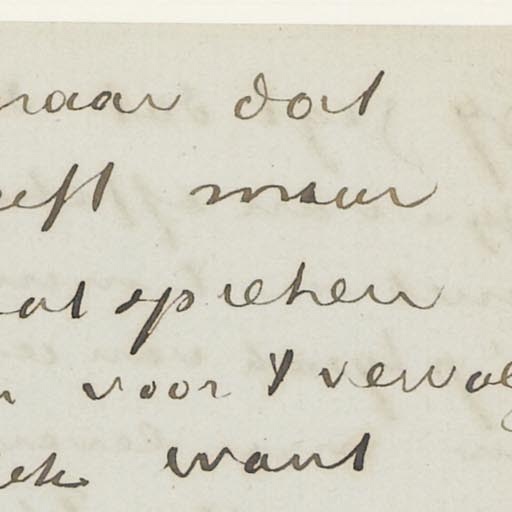 maar dat
eeft maar
at spreken
n voor 't vervolg
ek. want